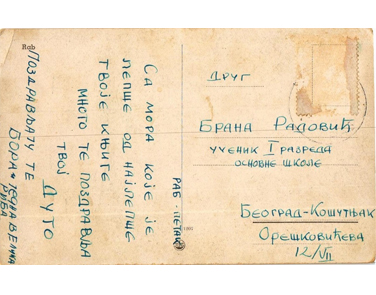 Rab
Са мора које је
лепше од најлепше
твоје књиге
много те поздравља
твој
Дуто
Поздрављају те
Бора и једна велика
риба
РАБ - ПЕТАК
Друг
Брана Радовић
ученик I разреда
основне школе
Београд-Кошутњак
Орешковићева
12/VII